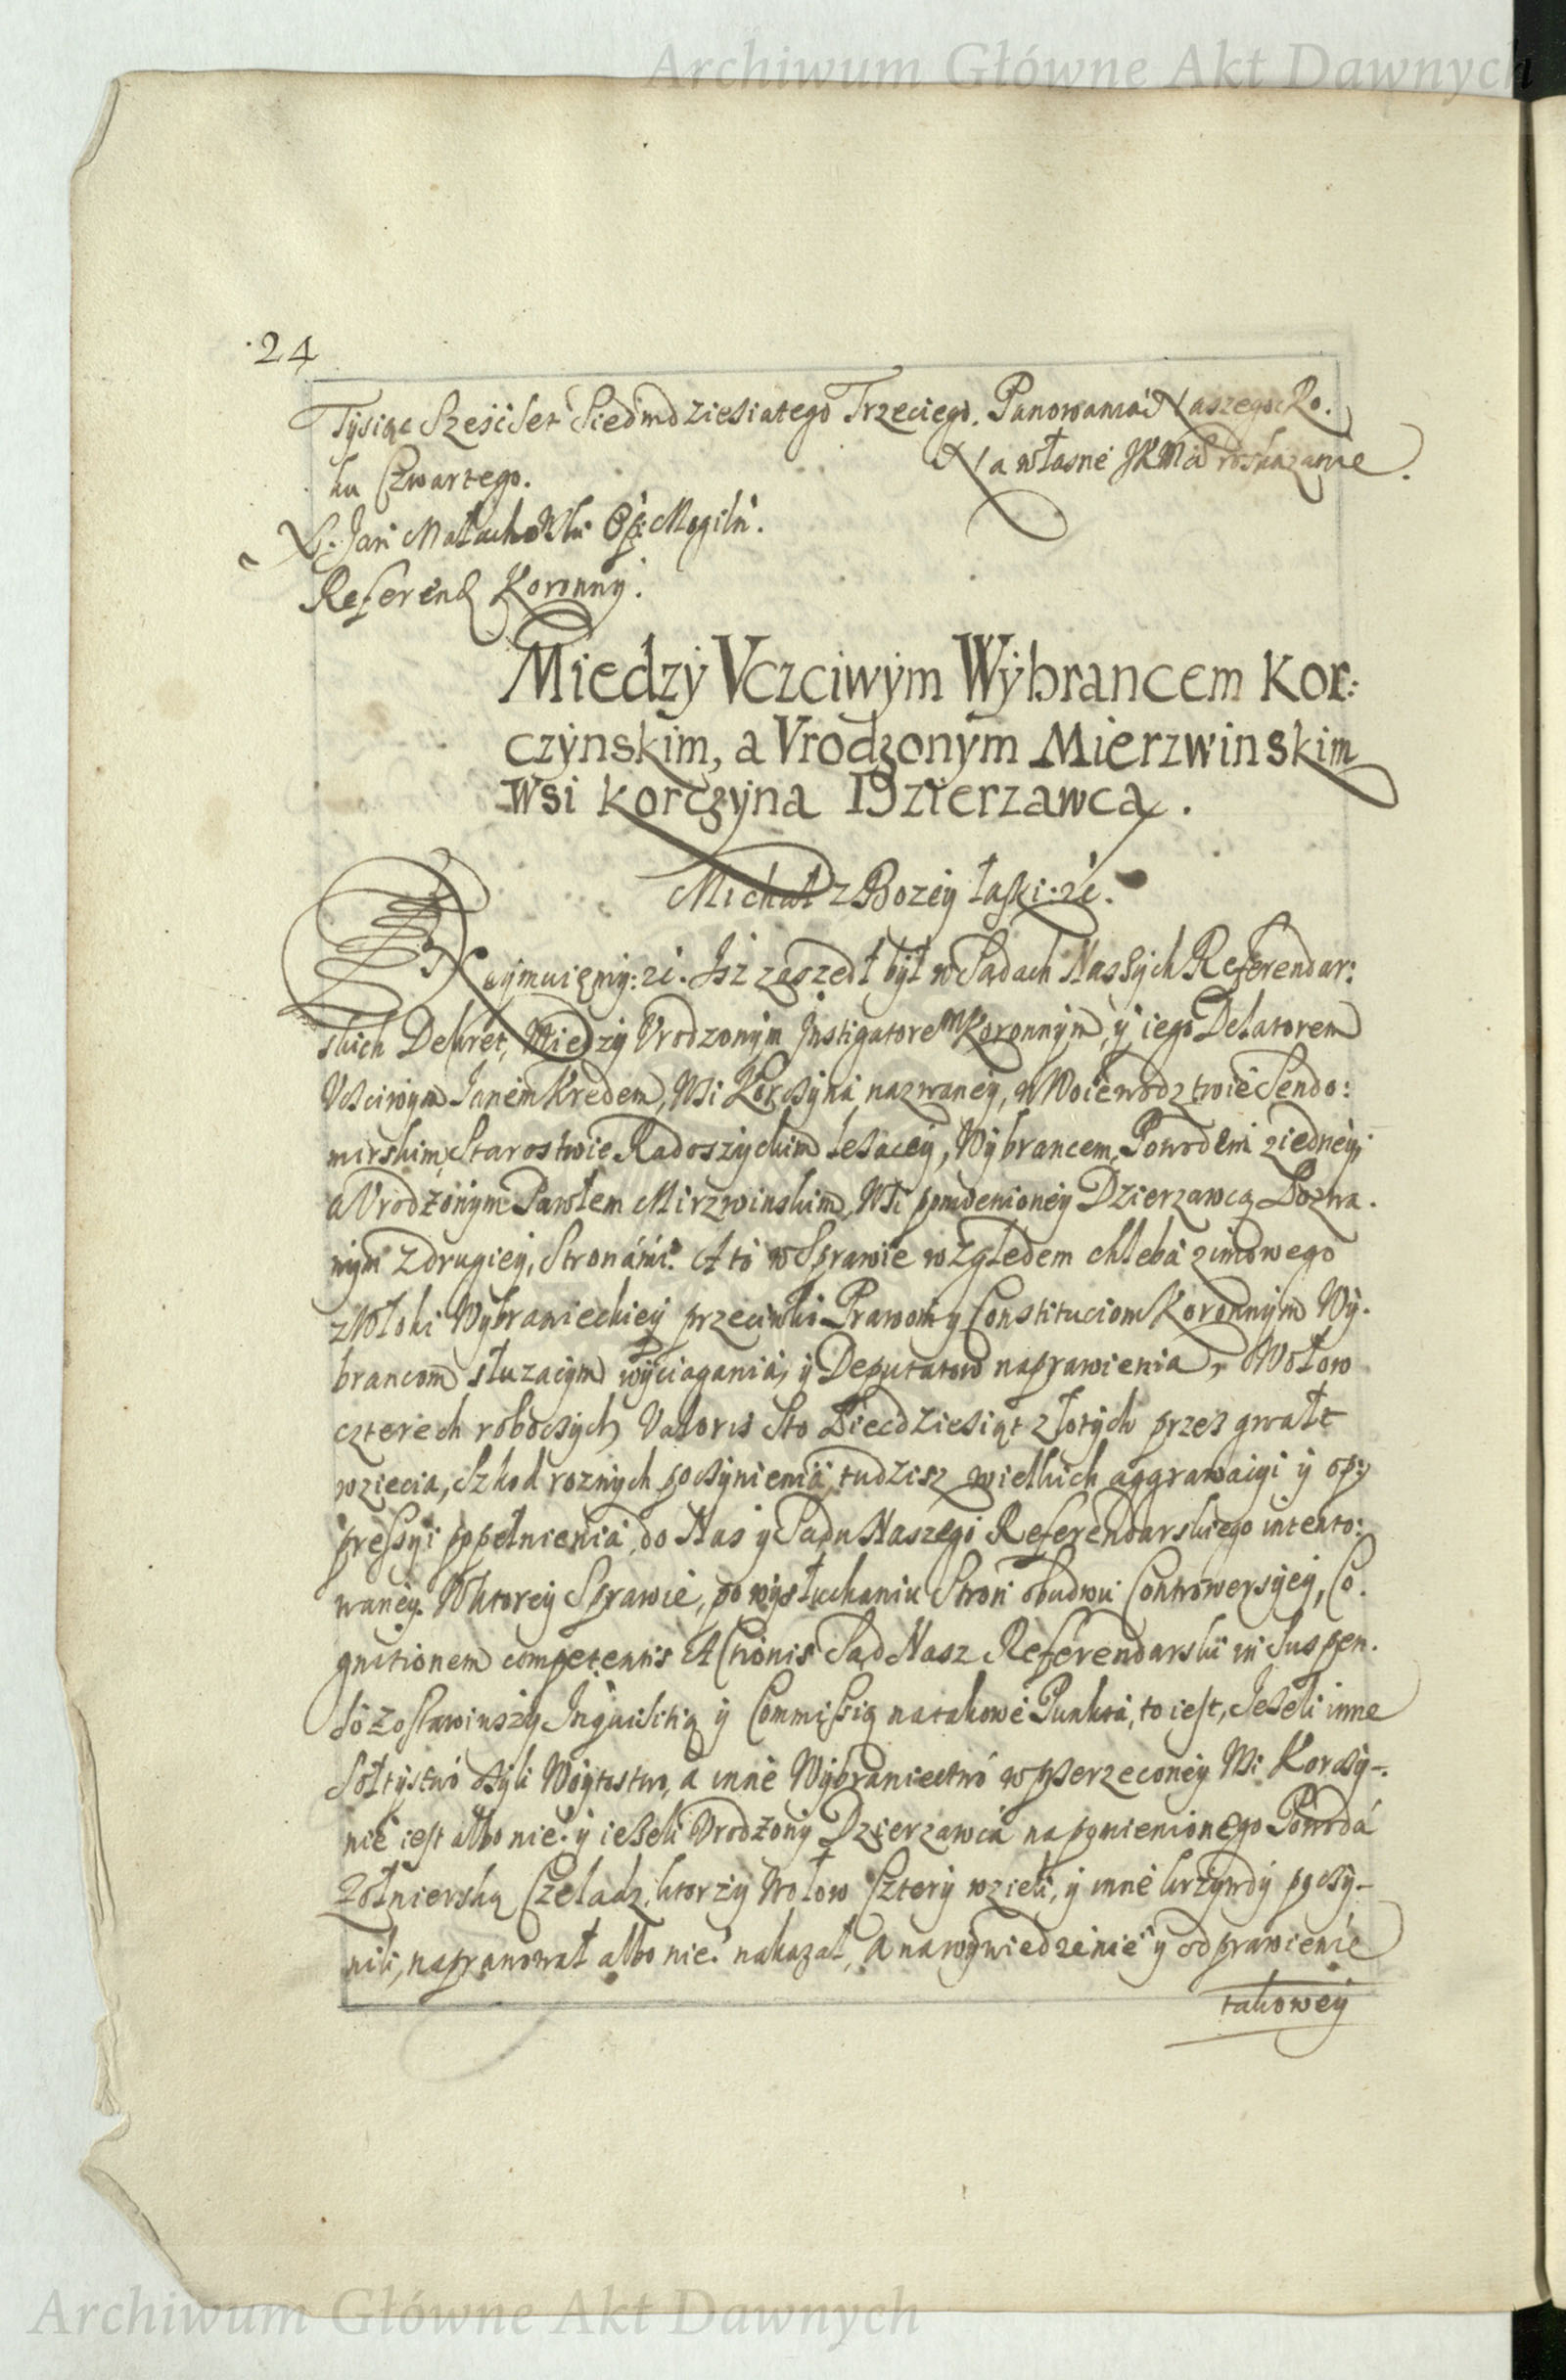 Archiwum Główne Akt Dawnych
24
Tysiąc Sześćset Siedmdziesiatego Trzeciego. Panowania Naszego Ro.
ku Czwartego. Na własne JKMci roskazanie.
X. Jan Małachowski Op: Mogiln.
Referend Koronny.
Miedzy Vczciwym Wybrancem Kor:
czynskim, a Vrodzonym Mierzwinskim
Wsi Korczyna Dzierzawcą.
Michał z Bozey łaski: zc.
Oznaymuiemy: zc. Isz zaszedł był w Sądach Naszych Referendar:
skich Dekret, Miedzy Vrodzonym Instigatorem Koronnym, y iego Delatorem
Vcsciwym Janem Kredem, Wsi Korcsyna nazwaney, w Woiewodztwie Sendo:
mirskim, Starostwie Radoszyckim lezącey, Wybrancem, Powodem z iedney,
a Vrodzonym Pawłem Mirzwinskim, Wsi pomienioney Dzierzawcą Pozwa.
nym z drugiey, Stronami. A to w Sprawie względem chleba zimowego
z Włoki Wybranieckiey przeciwko Prawom y Constituciom Koronnym Wy.
brancom słuzacym wyciagania, y Deputatow naprawienia, Wołow
czterech robocsych Valoris Sto Piecdziesiąt złotych przez gwałt
wziecia, Szkod roznych pocsynienia, tudzisz wielkich aggrawaiyi y op:
pressyi popełnienia, do Nas y Sądu Naszego Referendarskiego intento:
waney. W ktorey Sprawie, po wysłuchaniu Stron obudwu Controwersyey, Co.
gnitionem competentis Actionis Sąd Nasz Referendarski in Suspen.
so zostawiwszy Inquisitią y Commissią na takowe Punkta, to iest, Jeseli inne
Sołtystwo csyli Woytostwo, a inne Wybraniectwo w przerzeconey Wsi Korcsy-
nie iest albo nie. y ieseli Vrodzony Dzierzawca na pomienionego Powoda
Zołnierską Czeladz, ktorzy Wołow Cztery wzieli, y inne krzywdy pocsy-
nili, naprawował albo nie. nakazał, a na wywiedzenie y odprawienie
takowey
Archiwum Główne Akt Dawnych